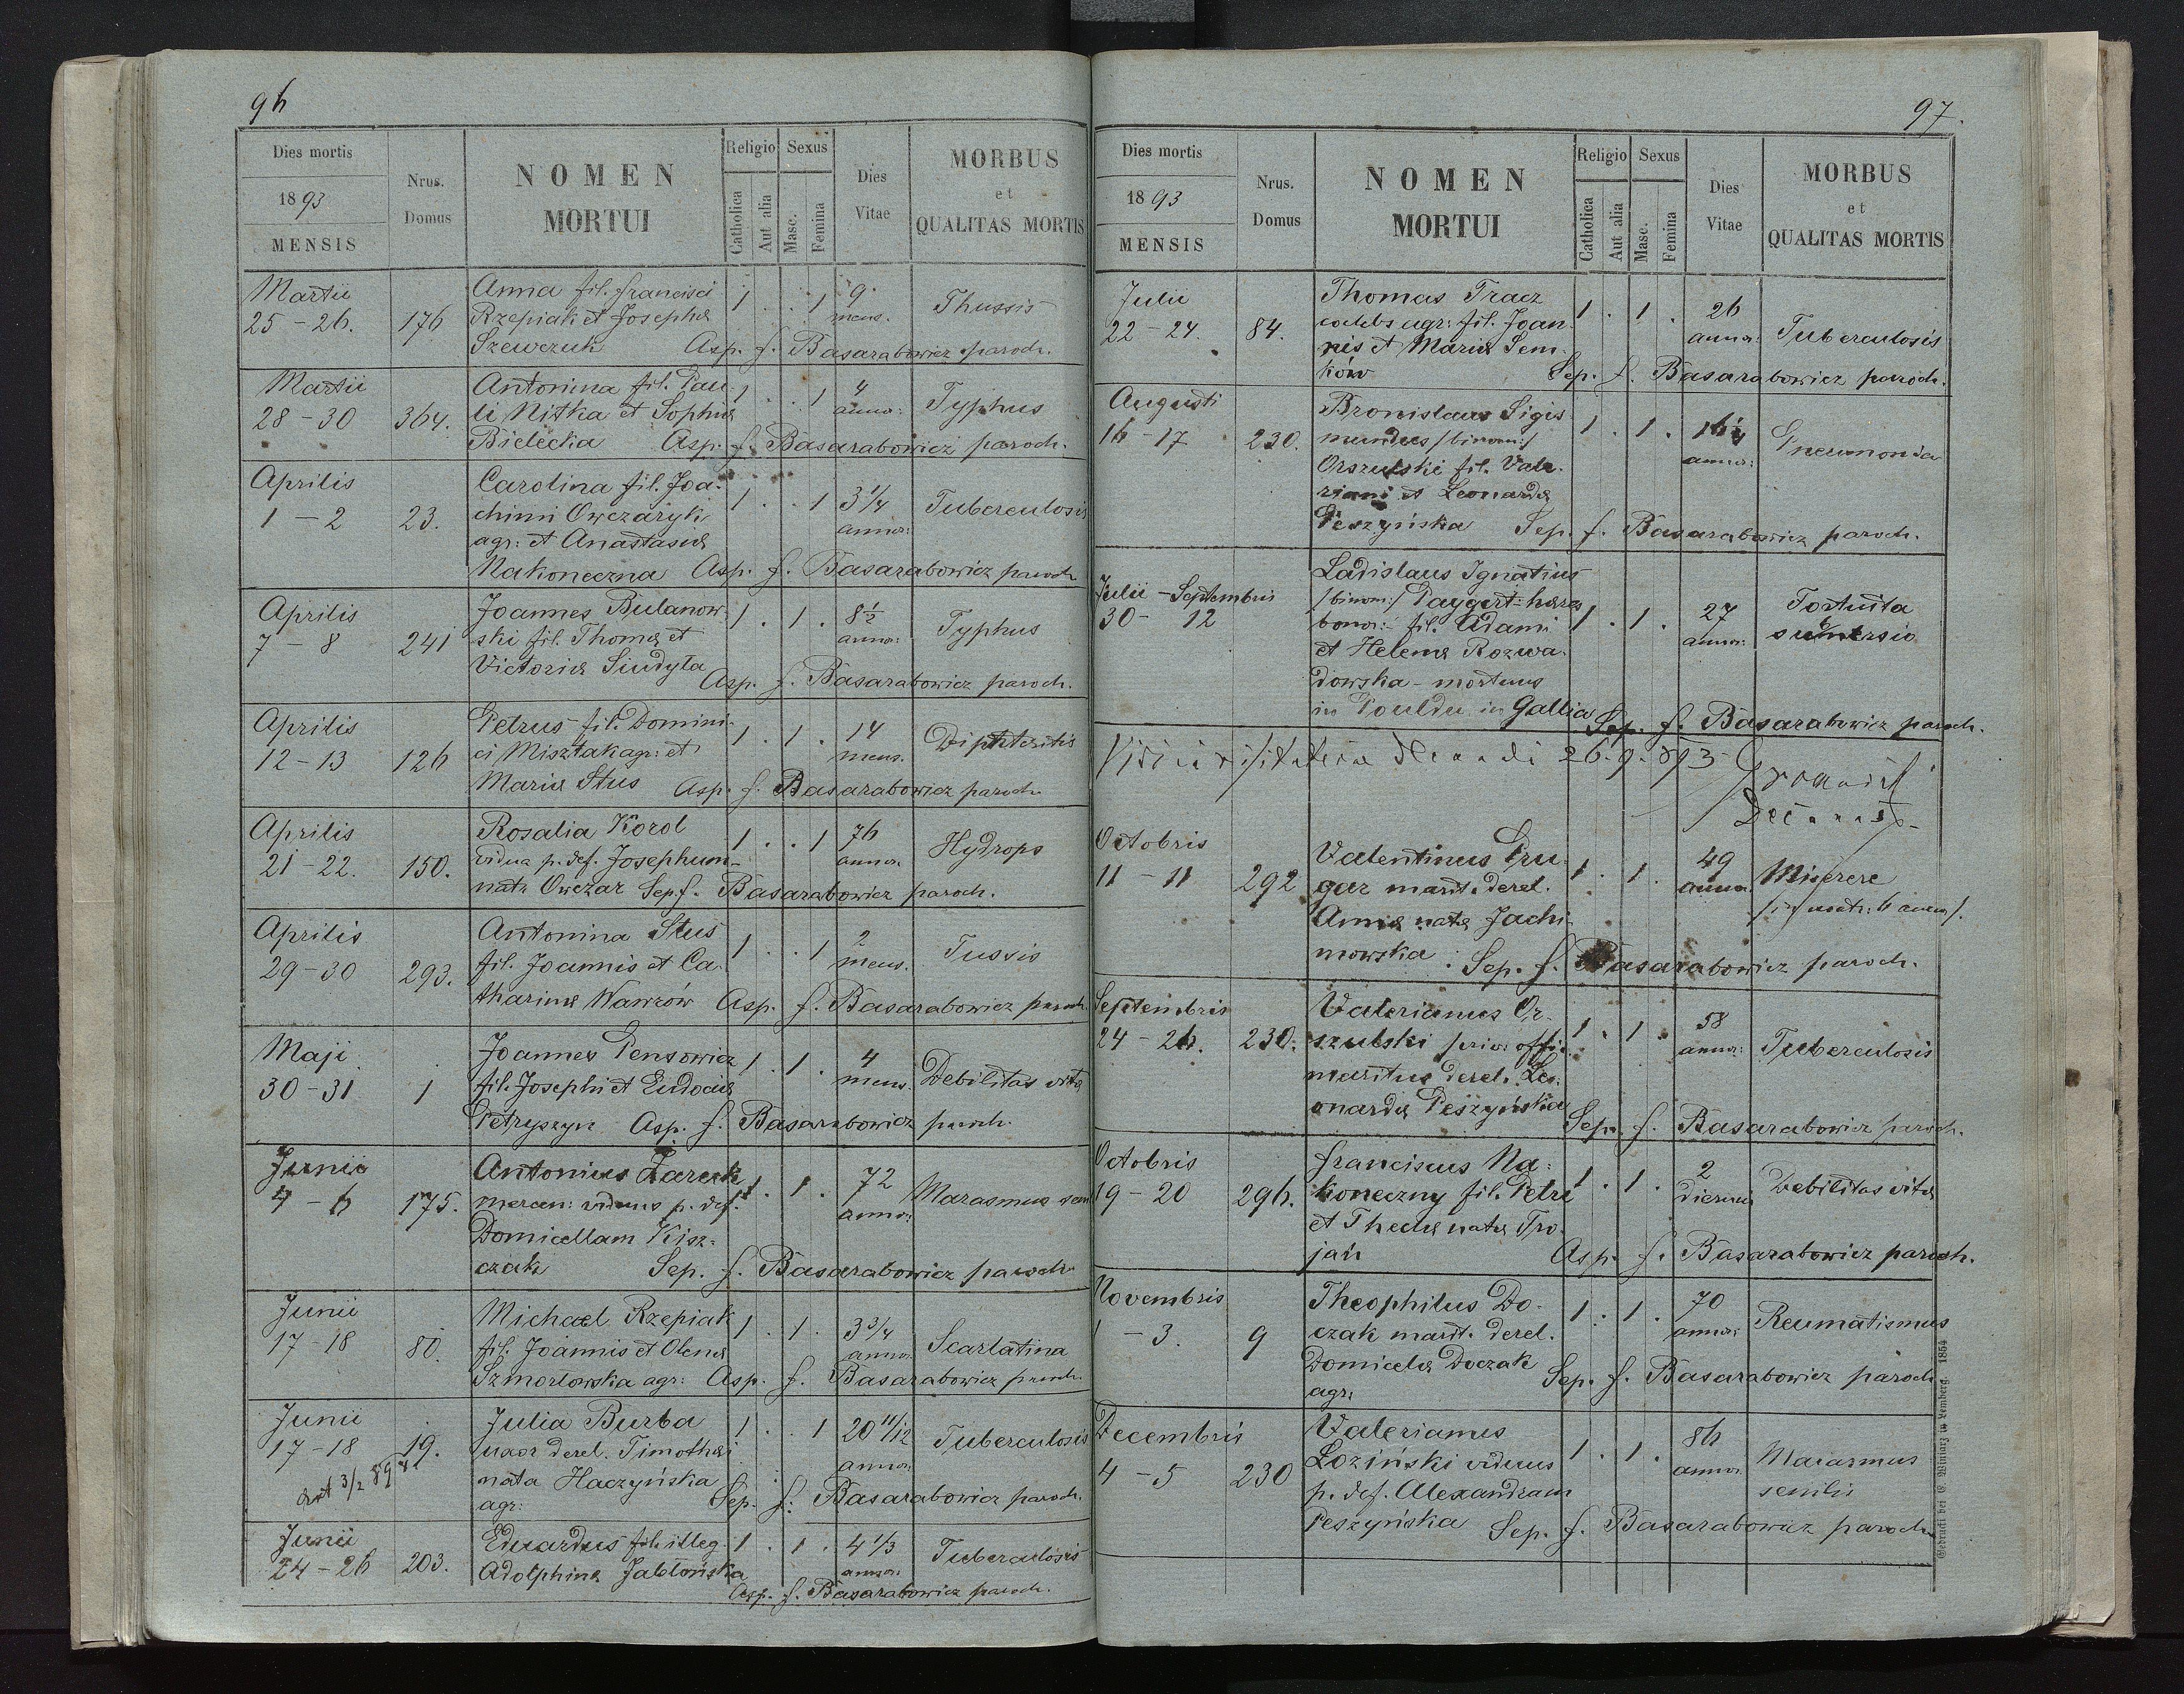 96
Dies mortis
1893
MENSIS
Nrus.
Domus
NOMEN
MORTUI
Religio
Catholica
Aut alia
Sexus
Masc.
Femina
Dies
Vitae
MORBUS
et
QUALITAS MORTIS
Martii
25 - 26. 176
Anna fil. Francisci
Rzepiak et Josephæ
Szewczuk
1 . . 1
9
mens.
Thussis
Asp. f. Basarabowicz paroch.
Martii
28 - 30 364.
Antonina fil. Pau-
li Nitka et Sophiæ
Bielecka
1 . . 1
4
annor:
Typhus
Asp. f. Basarabowicz paroch.
Aprilis
1 - 2 23.
Carolina fil. Joa-
chimi Owczaryk
agr: et Anastasiæ
Nakoneczna
1 . . 1
3 1/4
annor:
Tuberculosis
Asp. f. Basarabowicz paroch
Aprilis
7 - 8 241
Joannes Bulanow-
ski fil. Thomæ et
Victoriæ Siudyła
1 . 1 .
8 1/2
annor:
Typhus
Asp. f. Basarabowicz paroch.
Aprilis
12 - 13 126
Petrus fil. Domini-
ci Misztak agr: et
Mariæ Stus
1 . 1 .
14
mens.
Diphteritis
Asp. f. Basarabowicz paroch.
Aprilis
21 - 22. 150.
Rosalia Korol
vidua p. def. Josephum
nata Owczar
1 . . 1
76
annor.
Hydrops
Sep. f. Basarabowicz paroch.
Aprilis
29 - 30 293.
Antonina Stus
fil. Joannis et Ca-
tharinæ Wawrów
1 . . 1
2
mens.
Tussis
Asp. f. Basarabowicz paroch.
Maji
30 - 31 1
Joannes Pensowicz
fil. Josephi et Eudociæ
Petryszyn
1 . 1 .
4
mens.
Debilitas vitæ
Asp. f. Basarabowicz paroch.
Junii
4 - 6 175.
Antonius
mercen: viduus p. def.
Domicellam Kisz-
czak
1 . 1 .
72
annor:
Marasmus sen
Sep. f. Basarabowicz paroch
Junii
17 - 18 80.
Michael Rzepiak
fil. Joannis et Olenæ
Szmorlowska agr:
1 . 1 .
3 3/4
annor.
Scarlatina
Asp. f. Basarabowicz paroch.
Junii
17 - 18 19.
Julia Burba
uxor derel. Timothæi
nata Haczyńska
agr:
1 . . 1
20 11/12
annor.
Tuberculosis
Sep. f. Basarabowicz paroch.
Junii
24 - 26 203.
Eduardus fil. illeg.
Adolphinæ Jablońska
1 . 1 .
4 1/3
annor.
Tuberculosis
Asp. f. Basarabowicz paroch.
97.
Dies mortis
1893
MENSIS
Nrus.
Domus
NOMEN
MORTUI
Religio
Catholica
Aut alia
Sexus
Masc.
Femina
Dies
Vitae
MORBUS
et
QUALITAS MORTIS
Julii
22 - 24. 84.
Thomas Tracz
coelebs agr: fil. Joan-
nis et Mariæ Sem-
ków
1 . 1 .
26
annor.
Tuberculosis
Sep. f. Basarabowicz paroch.
Augusti
16 - 17 230.
Bronislaus Sigis-
mundus /binom:/
Orszulski fil. Vale-
riani et Leonardæ
Peszyńska
1 . 1 .
annor:
Pneumonia
Sep. f. Basarabowicz paroch.
Julii - Septembris
30 - 12
Ladislaus Ignatius
/binom:/ Paygert hæres
bonor: fil. Adami
et Helenæ Rozwa-
dowska - mortuus
in Pouldu in Gallia
1 . 1 .
27
annor:
Fortuita
submersio
Sep. f. Basarabowicz paroch.
26.9.893
Octobris
11 - 11 292
Valentinus Pru-
gar marit. derel.
Annæ natæ Jachi-
mowska
1 . 1 .
49
annor.
Miserere
Sep. f. Basarabowicz paroch.
Septembris
24 - 26. 230.
Valerianus Or-
szulski priv: offi:
maritus derel. Le-
onardæ Peszyńska
1 . 1 .
58
annor:
Tuberculosis
Sep. f. Basarabowicz paroch.
Octobris
19 - 20 296.
Franciscus Na-
koneczny fil. Petri
et Theclæ natæ Tro-
jań
1 . 1 .
2
dierum
Debilitas vitæ
Asp. f. Basarabowicz paroch.
Novembris
1 - 3. 9
Theophilus Do-
czak marit. derel.
Domicelæ Doczak
agr.
1 . 1 .
70
annor:
Reumatismus
Sep. f. Basarabowicz paroch
Decembris
4 - 5 230
Valerianus
Łoziński viduus
p. def. Alexandram
Peszyńska
1 . 1 .
86
annor.
Marasmus
senilis
Sep. f. Basarabowicz paroch
Gedruckt bei E. Winiarz in Lemberg. 1854